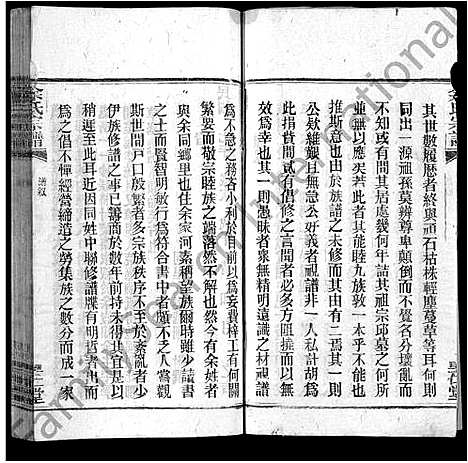 其世數履歷者終與頑石枯株輕塵蔓草等耳何則
同出一源祖孫莫辨尊卑顛倒而不覺名分壞亂而
不知或有問其居處幾何年詰其祖宗邱墓之何所
並無以應矣若此者其能睦九族敦一本乎不能也
推斯意也由於族譜之未修而其由有二焉其一則
公欵維艱且無急公好義者視譜非一人私計胡為
此捐貲間貳有倡修之言聞者必多方阻撓而以
為幸也其一則愚昧者衆無精明遠識之材視譜
為不急之務吝小利於目前以為妄費梓工有何關
繁要而敬宗睦族之端落然不以動也然今有余姓者
與余同鄉里也住余家河素稱望族爾時雖少讀書
之士而賢智明敏行為符合書中者頗不乏人嘗觀
斯世間戶口殷繁者多宗族秩序不至於紊亂者少
伊族修譜之事已籌商於數年前持未得其宜以
稍遲至此耳近因同姓中聯修譜牒有明哲者出而
為之倡不憚經營締造之勞集族之數分而成一家
余氏宗譜
譜叙